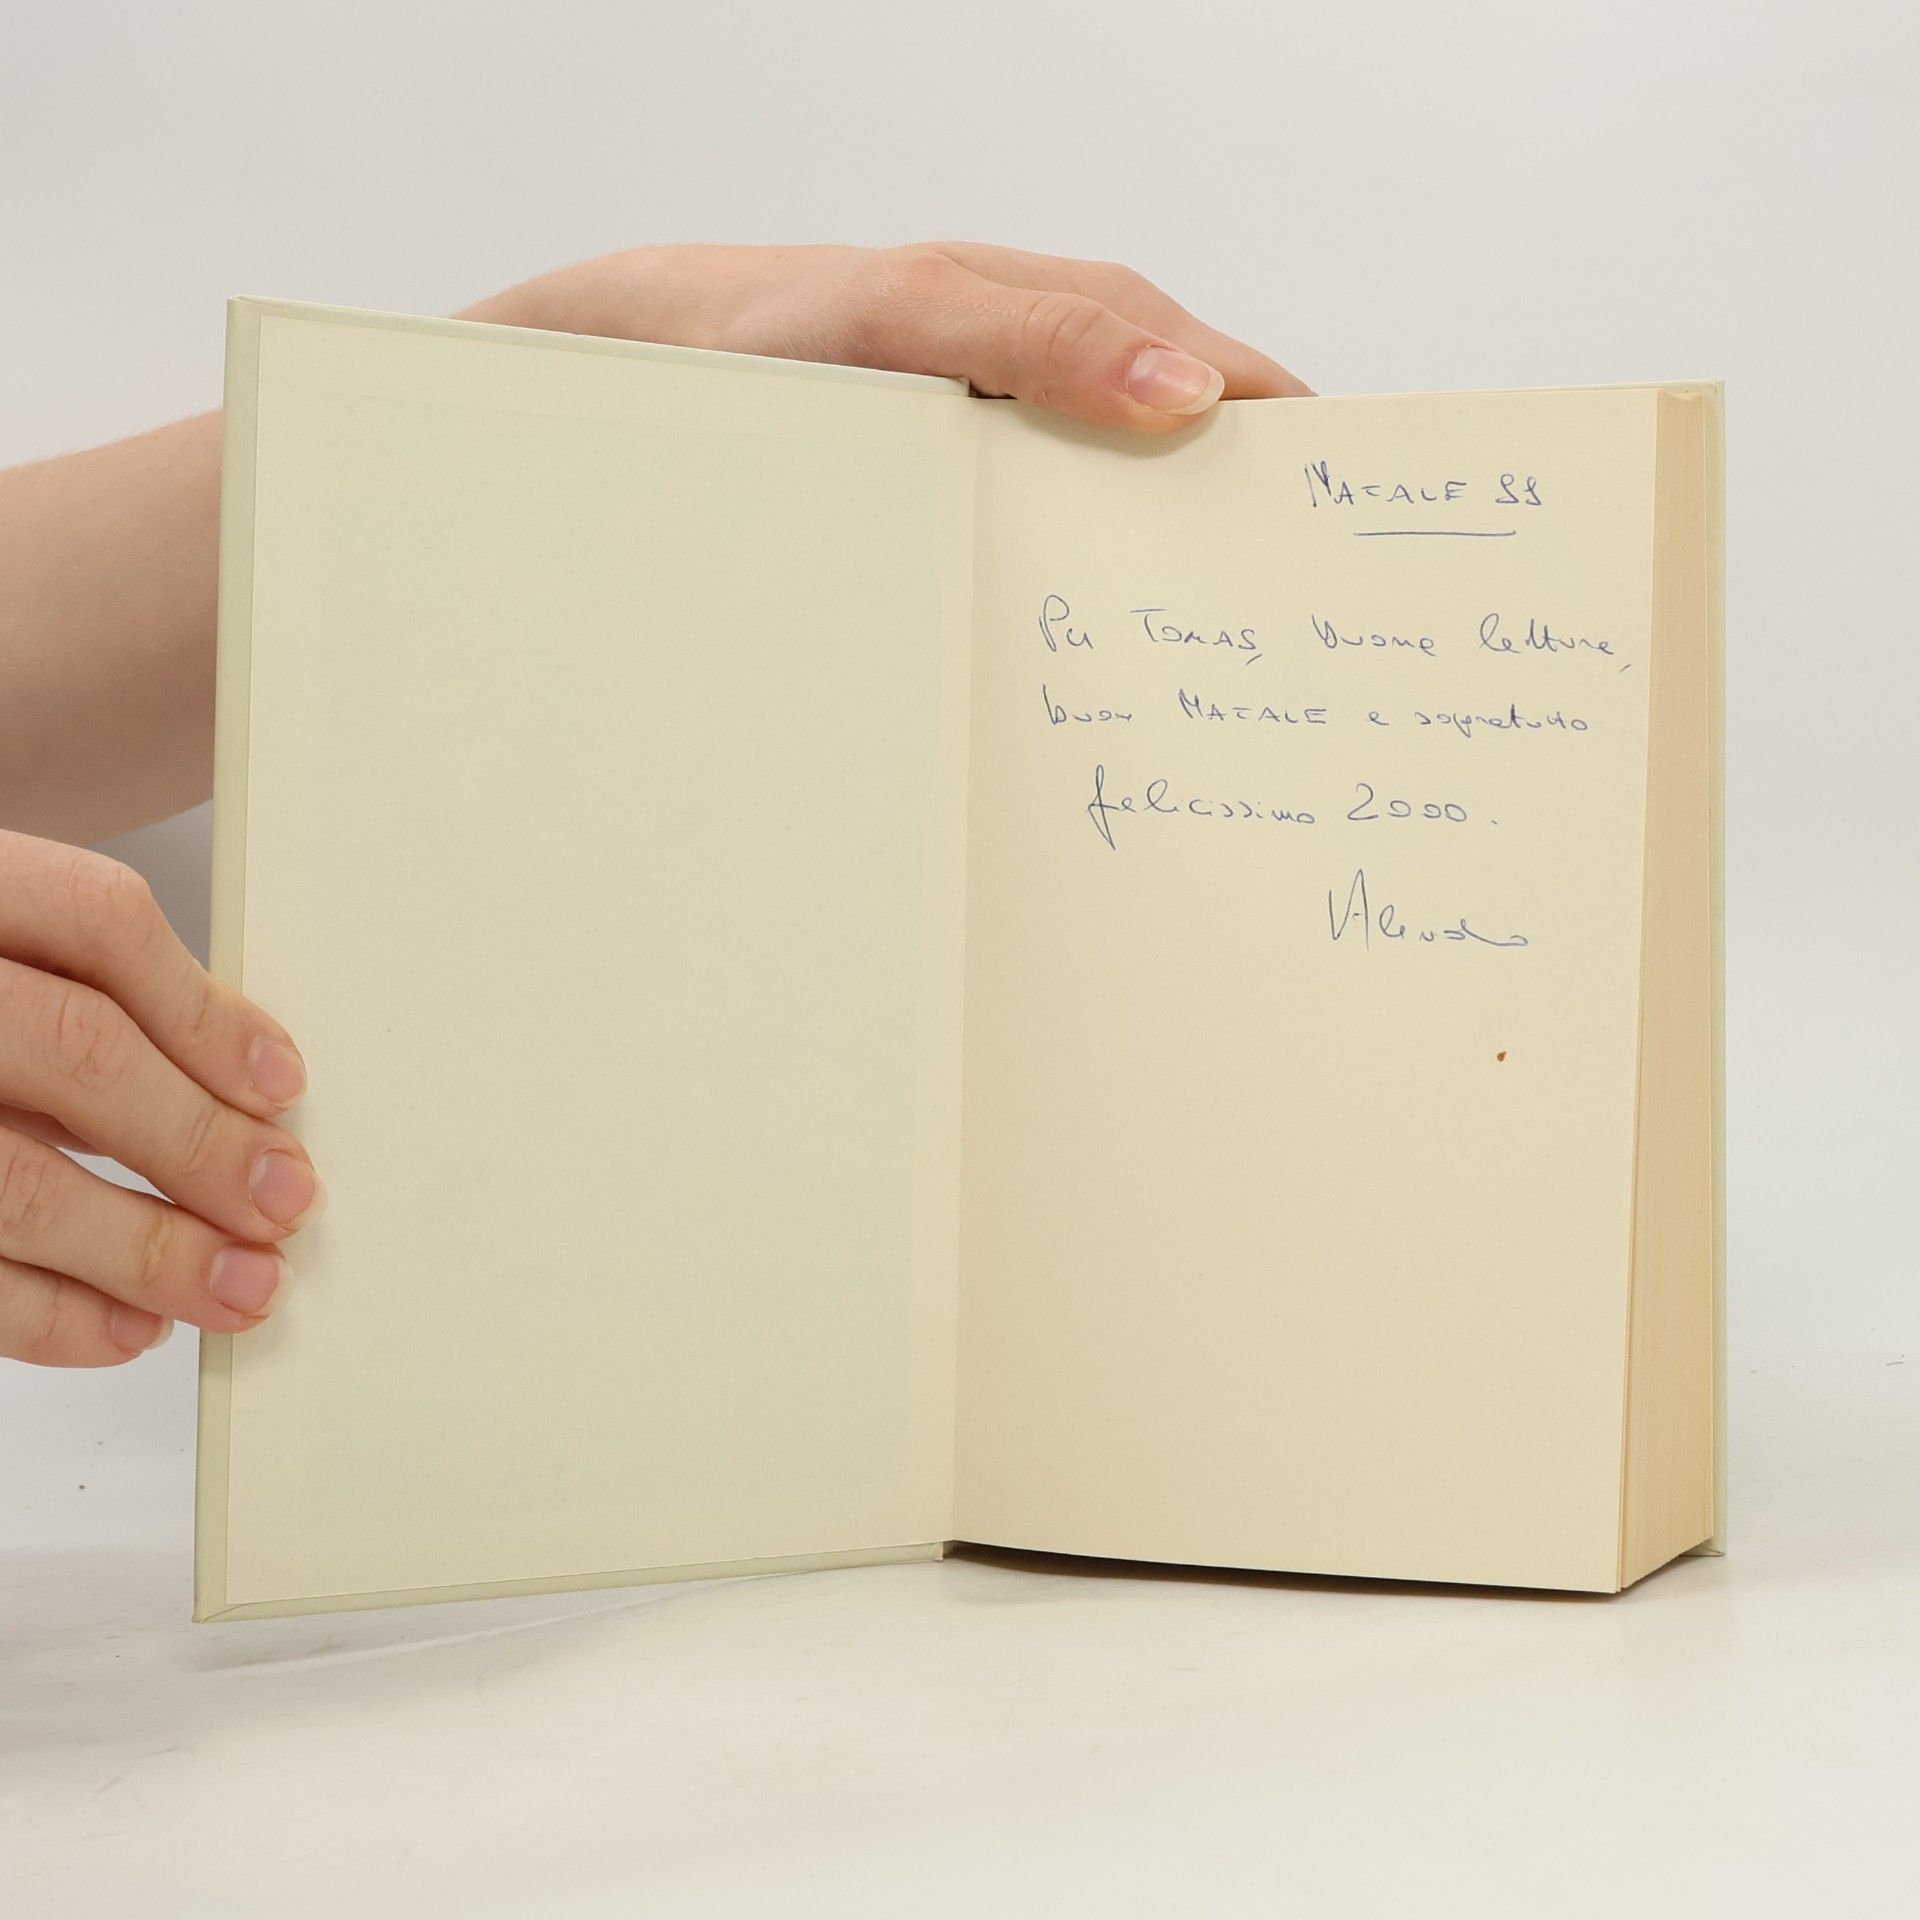 NATALE 99
Per TOMAS, buone letture,
buon NATALE e sopratutto
felicissimo 2000.